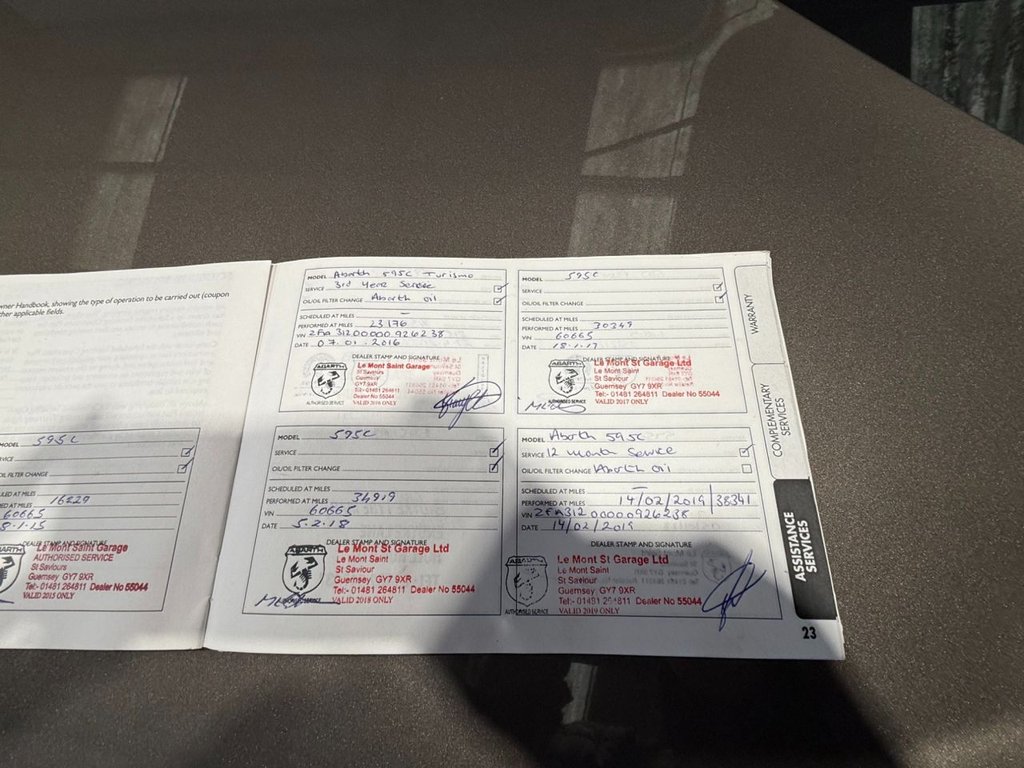 wner Handbook, showing the type of operation to be carried out (coupon
ther applicable fields.
595C
RVICE
OIL FILTER CHANGE
ULED AT MILES
MED AT MILES 16229
60665
8.1.15
DEALER STAMP AND SIGNATURE
ABARTH
Le Mont Saint Garage
AUTHORISED SERVICE
St Saviours
Guernsey GY7 9XR
Tel:- 01481 264811 Dealer No 55044
VALID 2015 ONLY
MODEL Abarth 595C Turismo
SERVICE 3rd Year Service
OIL/OIL FILTER CHANGE Abarth oil
SCHEDULED AT MILES –
PERFORMED AT MILES 23176
VIN ZFA 31200000926238
DATE 07.01.2016
DEALER STAMP AND SIGNATURE
ABARTH
AUTHORISED SERVICE
Le Mont Saint Garage
St Saviours
Guernsey
GY7 9XR
Tel:- 01481 264811
Dealer No 55044
VALID 2016 ONLY
MODEL 595C
SERVICE
OIL/OIL FILTER CHANGE
SCHEDULED AT MILES
PERFORMED AT MILES 30349
VIN 60665
DATE 18.1.17
DEALER STAMP AND SIGNATURE
ABARTH
AUTHORISED SERVICE
Le Mont St Garage Ltd
Le Mont Saint
St Saviour
Guernsey GY7 9XR
Tel:- 01481 264811 Dealer No 55044
VALID 2017 ONLY
MODEL 595C
SERVICE
OIL/OIL FILTER CHANGE
SCHEDULED AT MILES
PERFORMED AT MILES 34919
VIN 60665
DATE 5.2.18
DEALER STAMP AND SIGNATURE
ABARTH
Le Mont St Garage Ltd
Le Mont Saint
St Saviour
Guernsey GY7 9XR
Tel:- 01481 264811 Dealer No 55044
VALID 2018 ONLY
MODEL Abarth 595C
SERVICE 12 month Service
OIL/OIL FILTER CHANGE Abarth oil
SCHEDULED AT MILES –
PERFORMED AT MILES 14/02/2019/38341
VIN ZFA31200000926238
DATE 14/02/2019
DEALER STAMP AND SIGNATURE
ABARTH
AUTHORISED SERVICE
Le Mont St Garage Ltd
Le Mont Saint
St Saviour
Guernsey GY7 9XR
Tel:- 01481 264811 Dealer No 55044
VALID 2019 ONLY
WARRANTY
COMPLEMENTARY
SERVICES
ASSISTANCE
SERVICES
23